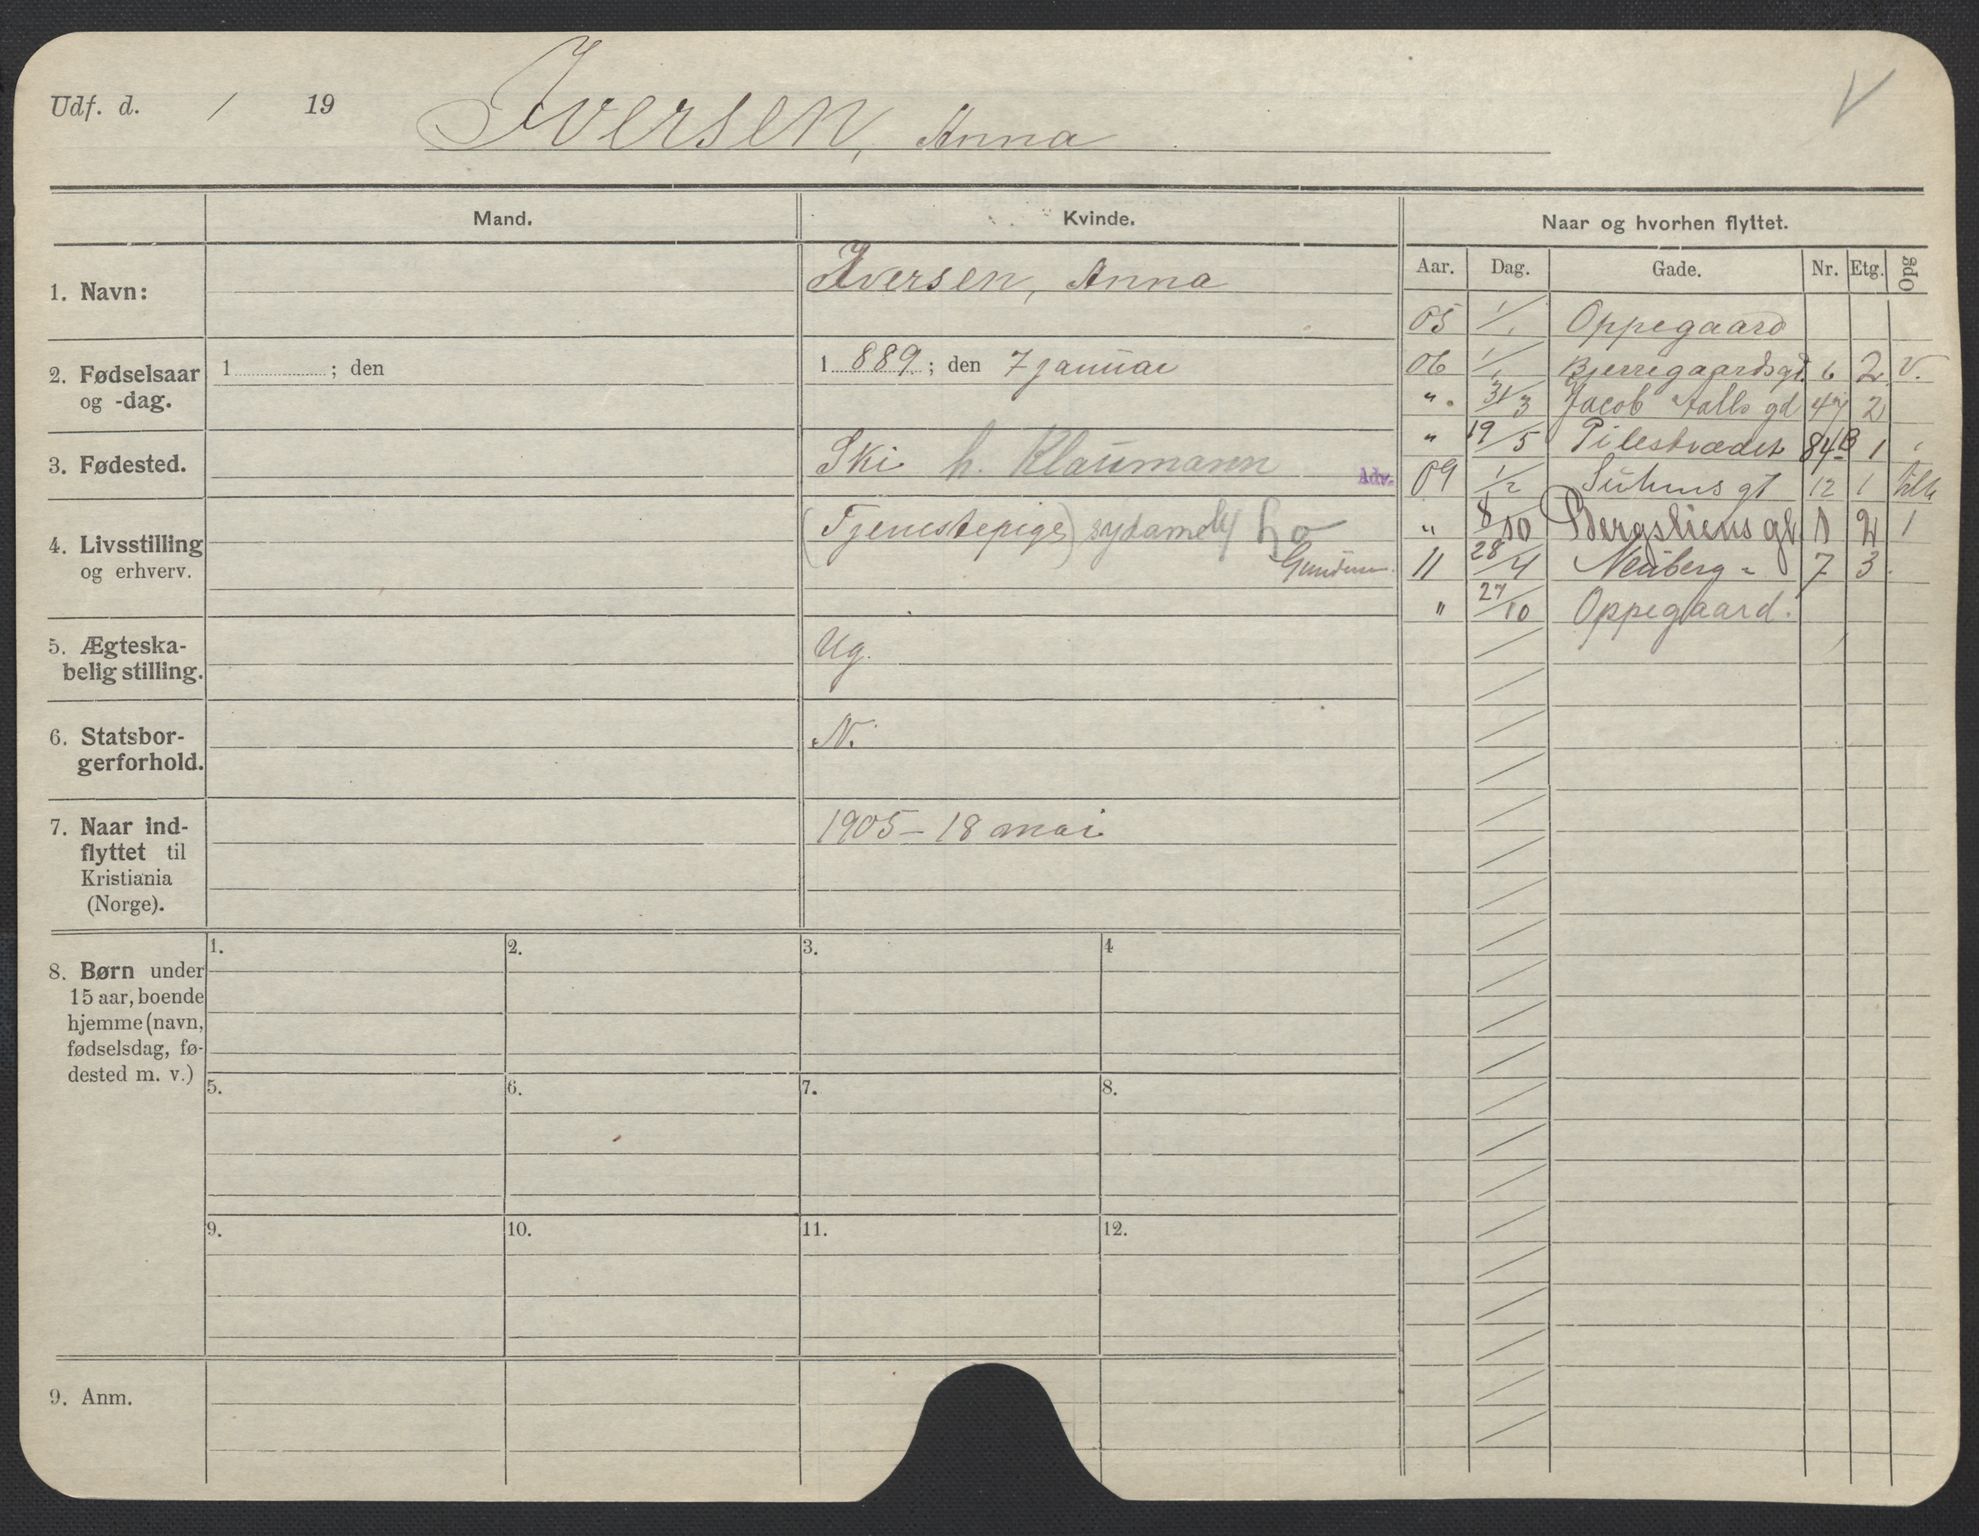 Udf. d. / 19 Iversen, Anna
V
Mand. Kvinde. Naar og hvorhen flyttet.
Aar. Dag. Gade. Nr. Etg. Opg
1. Navn: Iversen, Anna
2. Fødselsaar og -dag. 1 ; den 1 889 ; den 7 januar
3. Fødested. Ski h. Klaumann Adv.
4. Livsstilling og erhverv. (Tjenestepige) sydame
5. Ægteskabelig stilling. Ug.
6. Statsborgerforhold. N.
7. Naar indflyttet til Kristiania (Norge). 1905 – 18 mai
05 1/1 Oppegaard
06 1/1 Bjerregaardsgd. 6 2 V.
" 31/3 Jacob Aalls gd 47 2
" 19/5 Pilestrædet 84B 1
09 1/2 Suhms gt 12 1
" 8/10 Bergsliens gt. 1 2 1
11 28/4 Neuberg - 7 3
" 27/10 Oppegaard.
8. Børn under
15 aar, boende
hjemme (navn,
fødselsdag, fø-
dested m. v.)
1. 2. 3. 4
5. 6. 7. 8.
9. 10. 11. 12.
9. Anm.